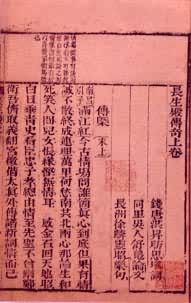 長生殿傳奇上卷
錢唐洪昇昉思填詞
同里吳人舒鳧論文
長洲徐麟靈昭樂句
傳槩 末上
滿江紅今古情場問誰個真心到底但果有精
誠不散終成連理萬里何愁南共北兩心那論生和
死笑人間兒女悵緣慳無情耳感金石回天地昭
白日垂青史看臣忠子孝總由情至先聖不曾刪鄭
衛吾儕取義翻宮徵借太真外傳譜新詞情而已